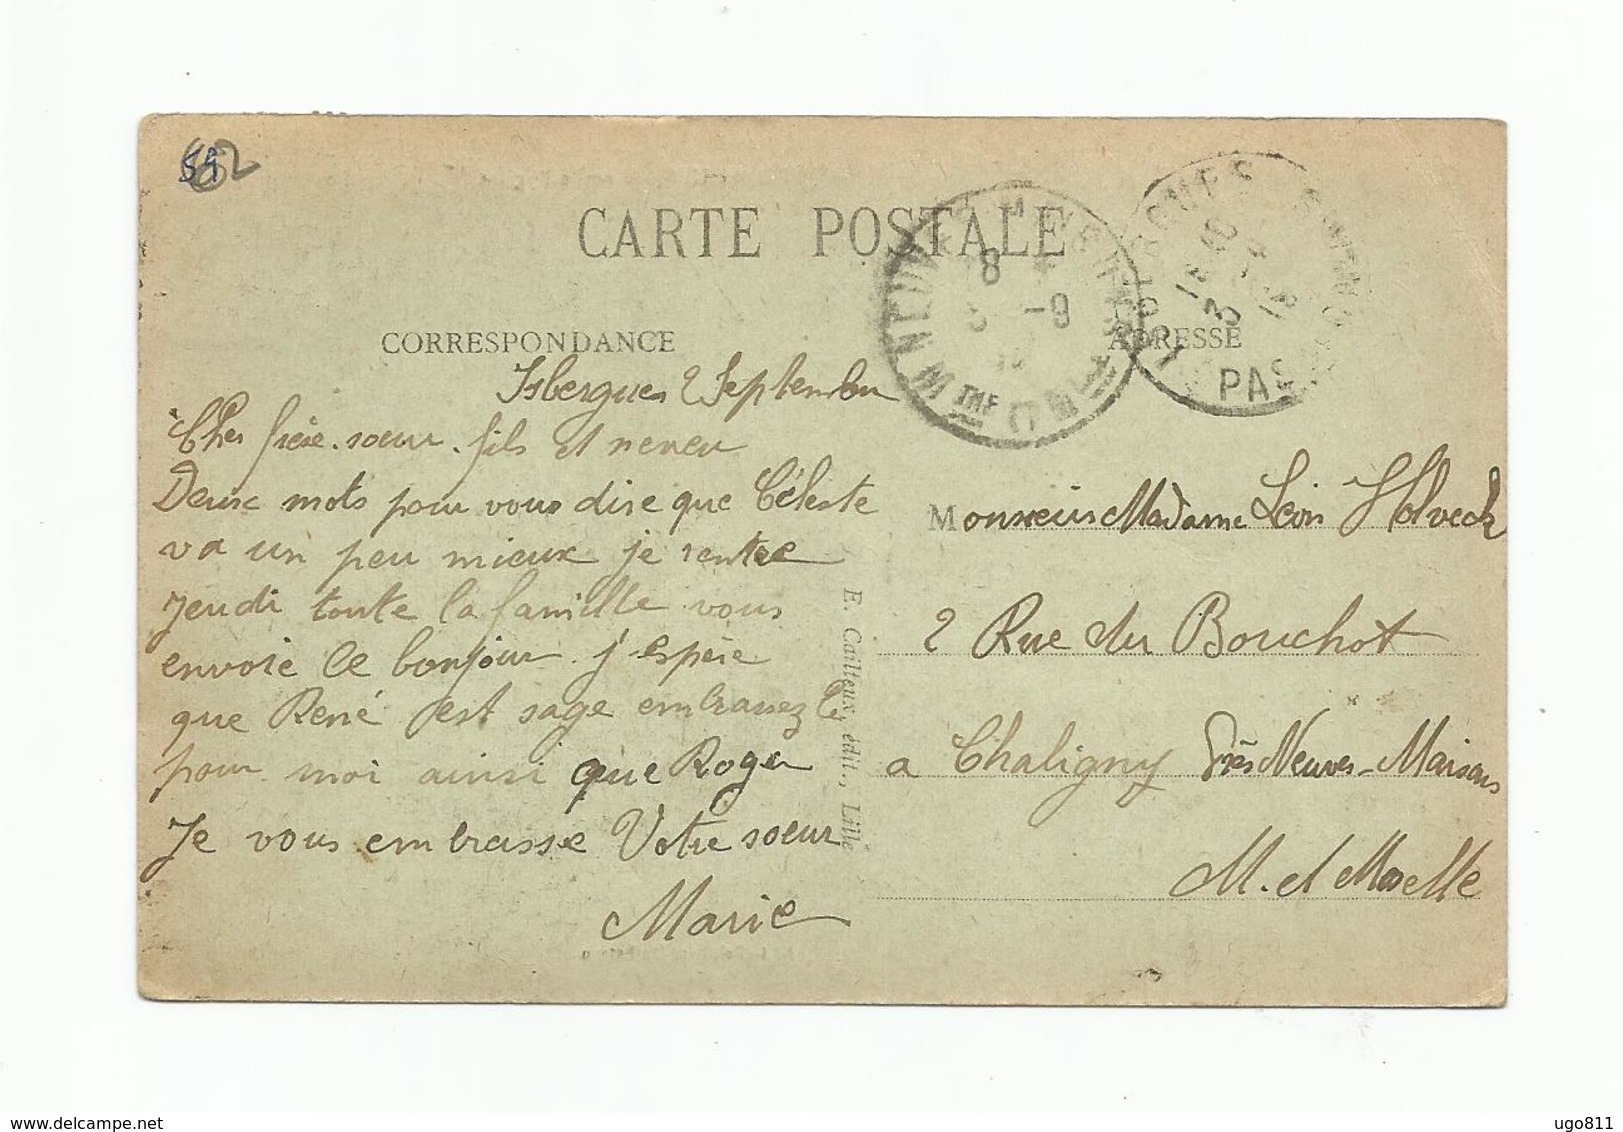 59
62
CARTE POSTALE
CORRESPONDANCE
ADRESSE
8
3 -9
16 40
3 -9
PAS
Isbergues 2 Septembre
Cher frère. soeur. fils et neveu
Deux mots pour vous dire que Céleste
va un peu mieux je rentre
Jeudi toute la famille vous
envoie le bonjour. j'espère
que René est sage embrassez le
pour moi ainsi que Roger
Je vous embrasse Votre soeur
Marie
E. Cailteux, édit., Lille
Monsieur Madame Léon Holveck
2 Rue du Bouchot
a Chaligny Près Neuves-Maisons
M. et Moselle
delcampe.net
ugo811